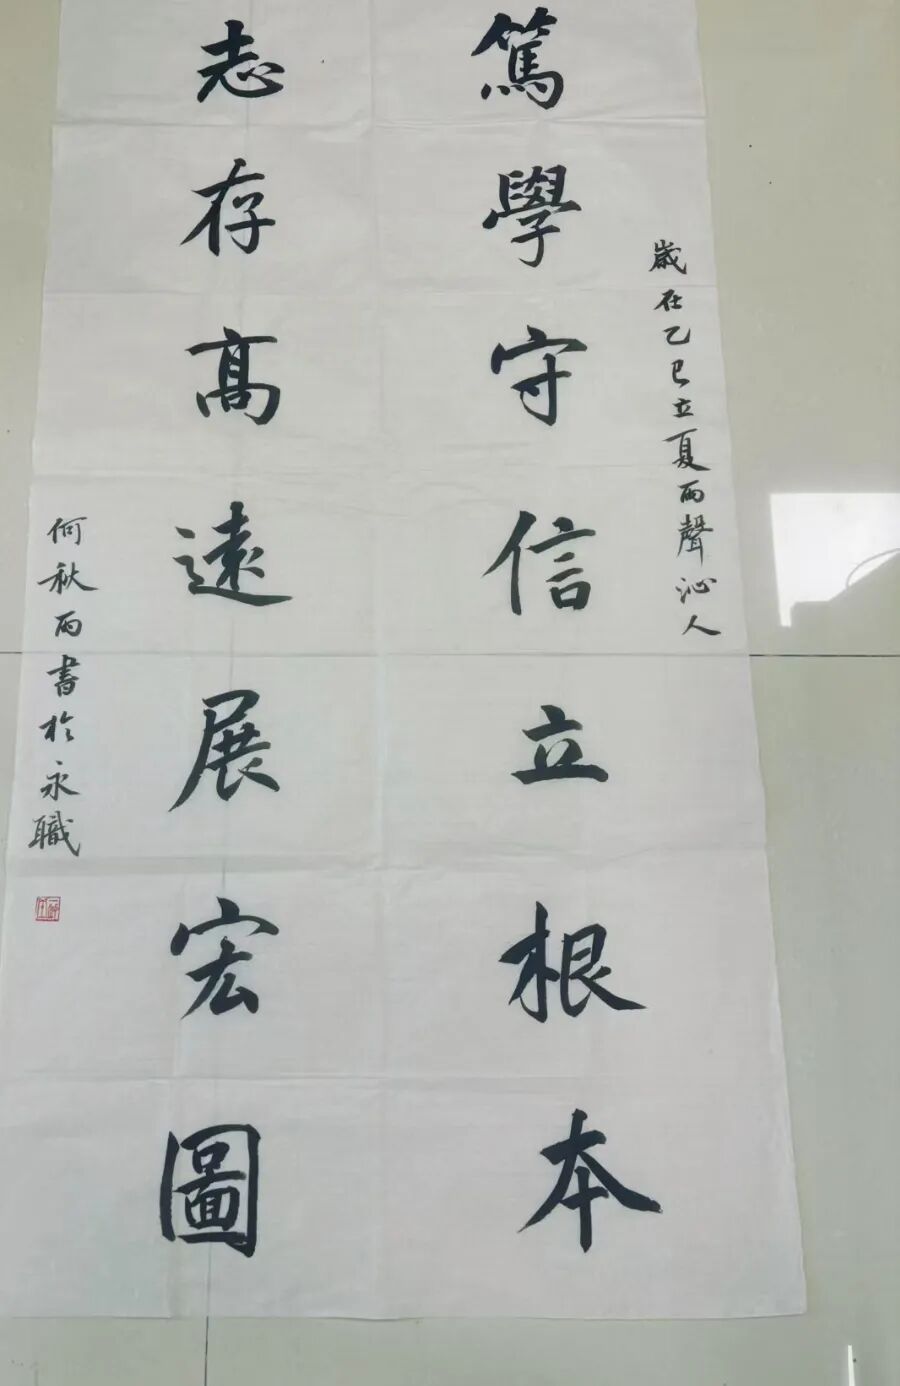 歲在乙巳立夏雨聲沁人
篤學守信立根本
志存高遠展宏圖
何秋雨書於永職